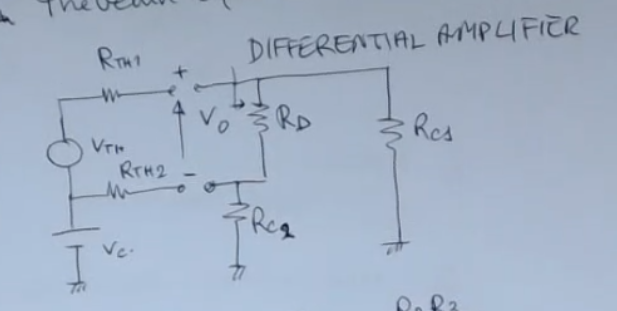 DIFFERENTIAL AMPLIFIER
RTH1
+
Vo
RD
RC1
VTH
RTH2
-
RC2
Vc.